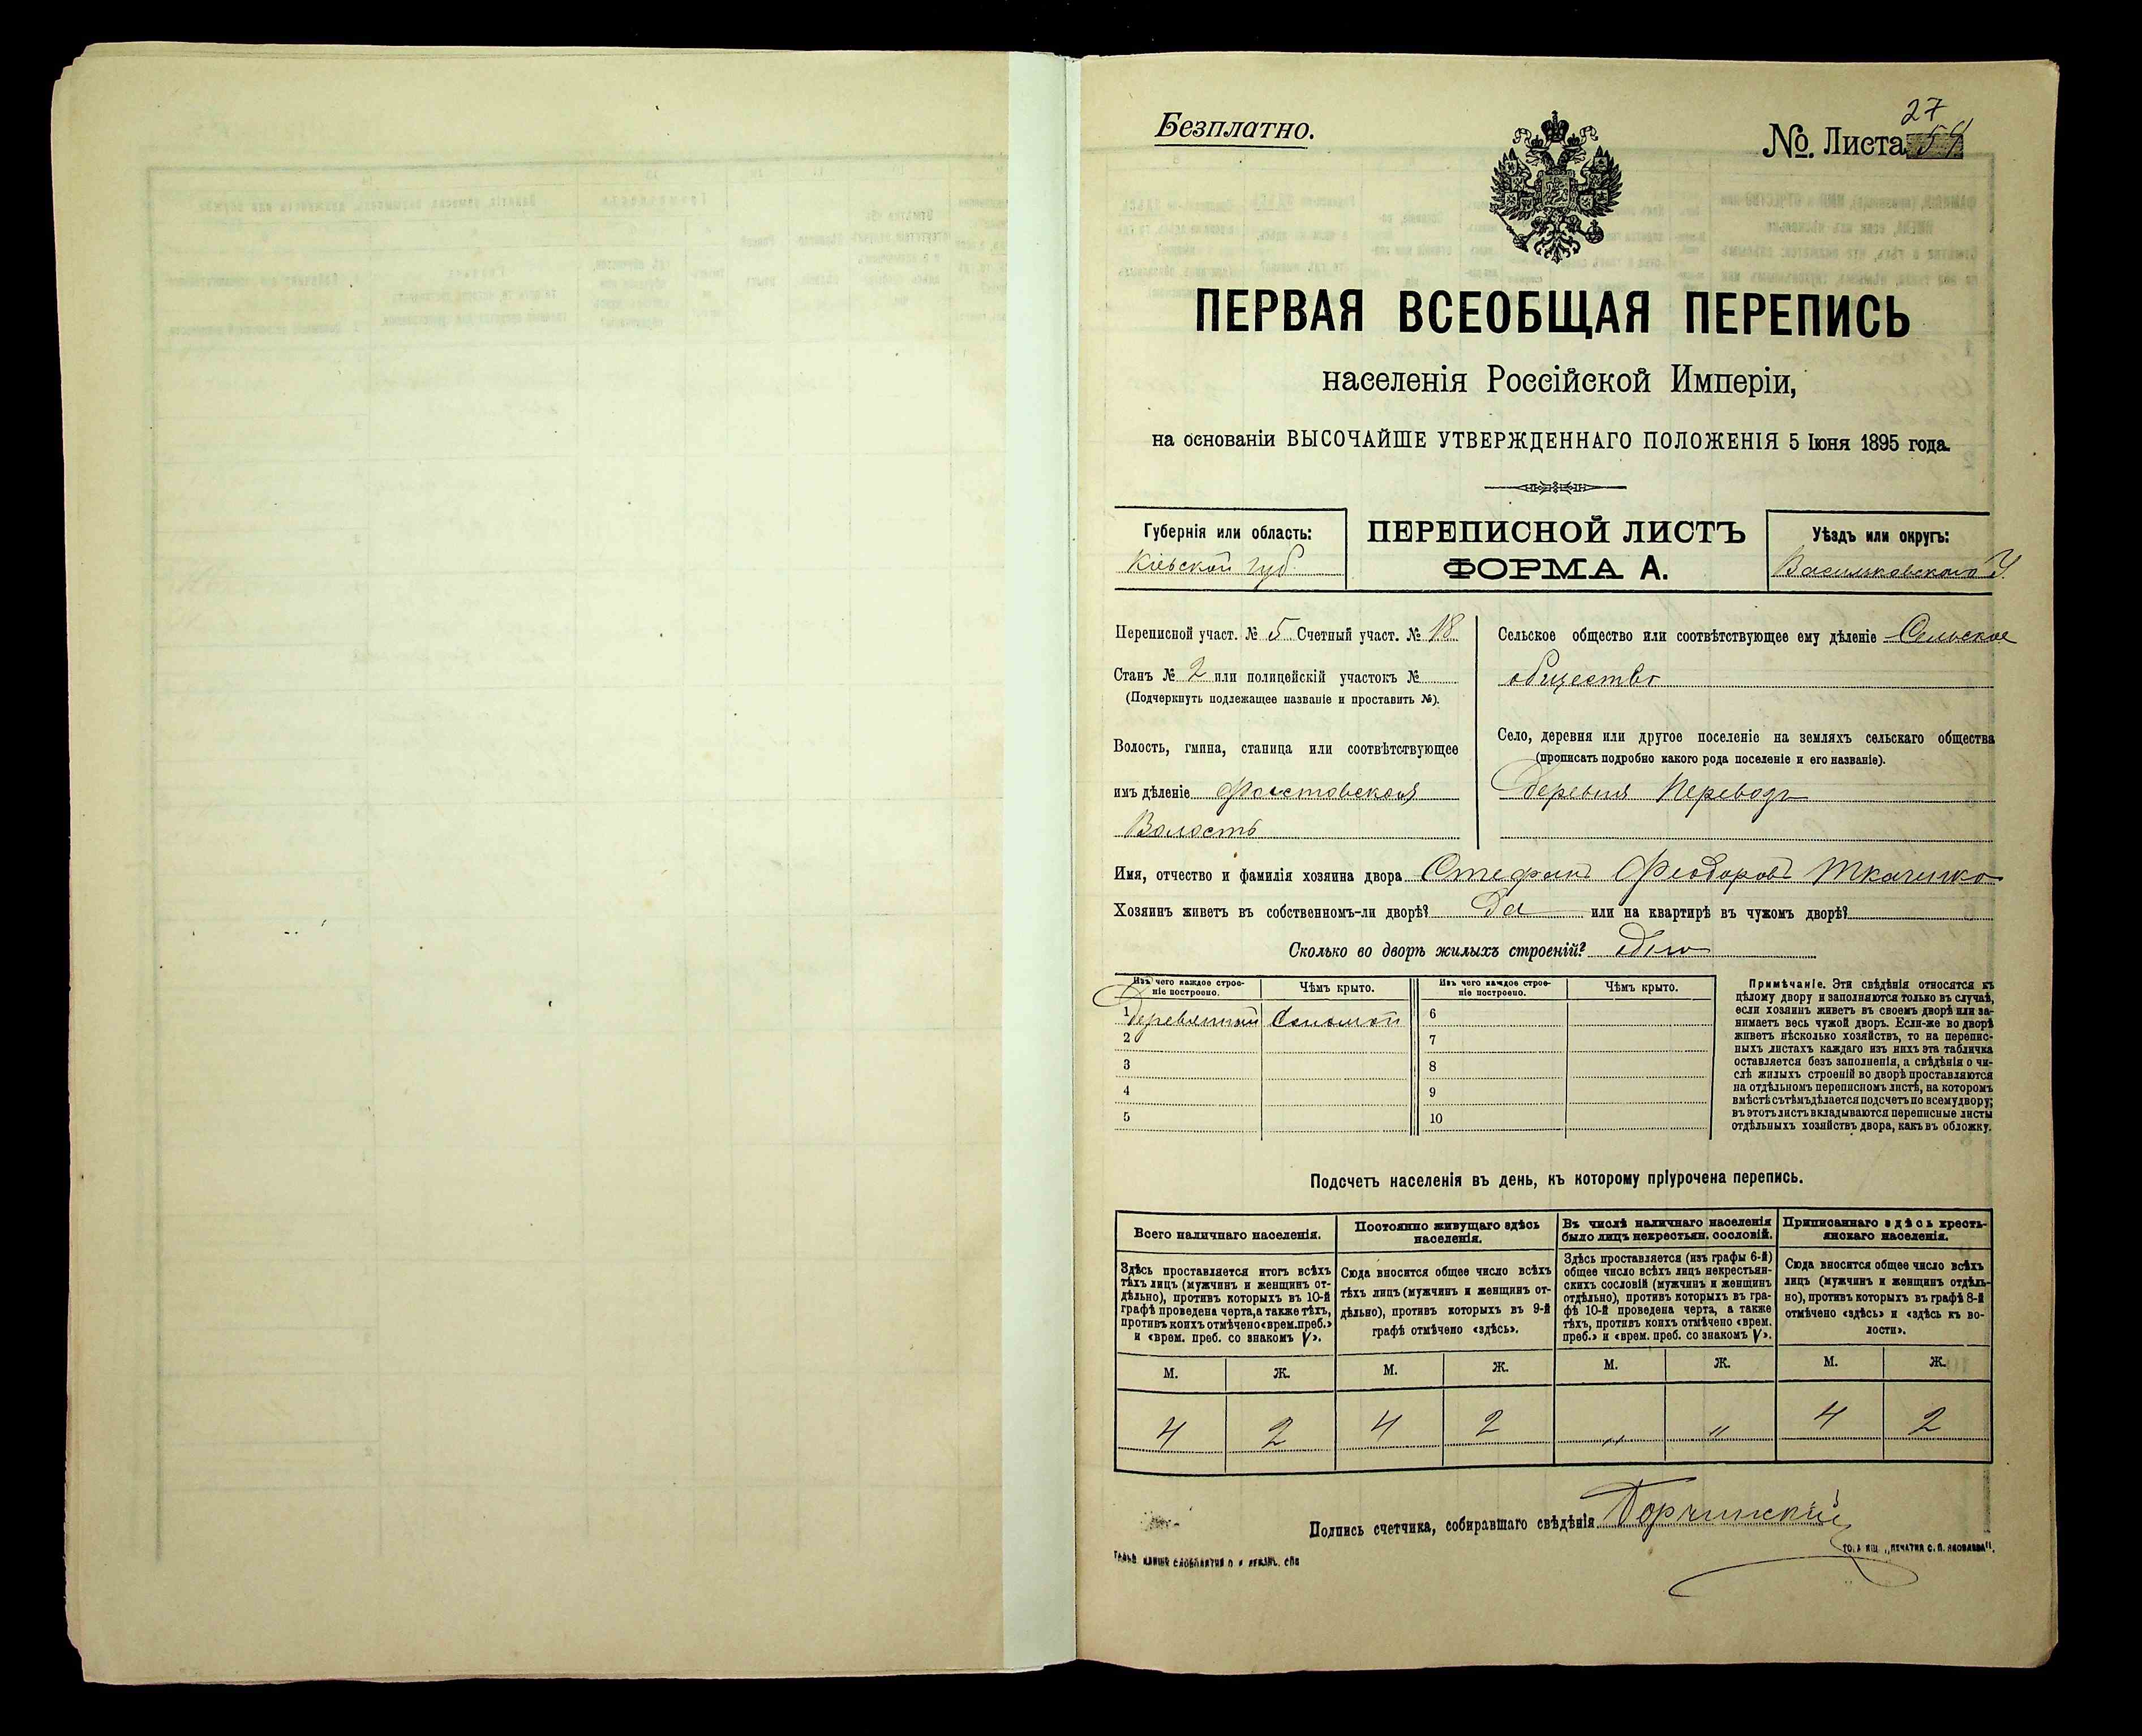 Безплатно.
27
№. Листа 54
ПЕРВАЯ ВСЕОБЩАЯ ПЕРЕПИСЬ
населенія Россійской Имперіи,
на основаніи ВЫСОЧАЙШЕ УТВЕРЖДЕННАГО ПОЛОЖЕНІЯ 5 Іюня 1895 года.
Губернія или область:
Кіевской губ.
ПЕРЕПИСНОЙ ЛИСТЪ
ФОРМА А.
Уѣздъ или округъ:
Васильковскаго У.
Переписной участ. № 5 Счетный участ. № 18
Станъ № 2 или полицейскій участокъ №
(Подчеркнуть подлежащее названіе и проставить №).
Волость, гмина, станица или соотвѣтствующее
имъ дѣленіе Фастовская
Волость
Сельское общество или соотвѣтствующее ему дѣленіе Сельское
общество
Село, деревня или другое поселеніе на земляхъ сельскаго общества
(прописать подробно какого рода поселеніе и его названіе).
Деревня Переводъ
Имя, отчество и фамилія хозяина двора Стефанъ Феодоровъ Ткаченко
Хозяинъ живетъ въ собственномъ-ли дворѣ? Да или на квартирѣ въ чужомъ дворѣ?
Сколько во дворѣ жилыхъ строеній?
Изъ чего каждое строе-
ніе построено.
Чѣмъ крыто.
Изъ чего каждое строе-
ніе построено.
Чѣмъ крыто.
1 Деревянный Соломой
6
2
7
3
8
4
9
5
10
Примѣчаніе. Эти свѣдѣнія относятся къ
цѣлому двору и заполняются только въ случаѣ,
если хозяинъ живетъ въ своемъ дворѣ или за-
нимаетъ весь чужой дворъ. Если-же во дворѣ
живетъ нѣсколько хозяйствъ, то на перепис-
ныхъ листахъ каждаго изъ нихъ эта табличка
оставляется безъ заполненія, а свѣдѣнія о чи-
слѣ жилыхъ строеній во дворѣ проставляются
на отдѣльномъ переписномъ листѣ, на которомъ
вмѣстѣ съ тѣмъ дѣлается подсчетъ по всему двору;
въ этотъ листъ вкладываются переписные листы
отдѣльныхъ хозяйствъ двора, какъ въ обложку.
Подсчетъ населенія въ день, къ которому пріурочена перепись.
Всего наличнаго населенія.
Здѣсь проставляется итогъ всѣхъ
тѣхъ лицъ (мужчинъ и женщинъ от-
дѣльно), противъ которыхъ въ 10-й
графѣ проведена черта, а также тѣхъ,
противъ коихъ отмѣчено «врем. преб.»
и «врем. преб. со знакомъ V».
Постоянно живущаго здѣсь
населенія.
Сюда вносится общее число всѣхъ
тѣхъ лицъ (мужчинъ и женщинъ от-
дѣльно), противъ которыхъ въ 9-й
графѣ отмѣчено «здѣсь».
Въ числѣ наличнаго населенія
было лицъ некрестьян. сословій.
Здѣсь проставляется (изъ графы 6-й)
общее число всѣхъ лицъ некрестьян-
скихъ сословій (мужчинъ и женщинъ
отдѣльно), противъ которыхъ въ гра-
фѣ 10-й проведена черта, а также
тѣхъ, противъ коихъ отмѣчено «врем.
преб.» и «врем. преб. со знакомъ V».
Приписаннаго здѣсь кресть-
янскаго населенія.
Сюда вносится общее число всѣхъ
лицъ (мужчинъ и женщинъ отдѣль-
но), противъ которыхъ въ графѣ 8-й
отмѣчено «здѣсь» и «здѣсь къ во-
лости».
М. Ж. М. Ж. М. Ж. М. Ж.
4 2 4 2 „ „ 4 2
Подпись счетчика, собиравшаго свѣдѣнія